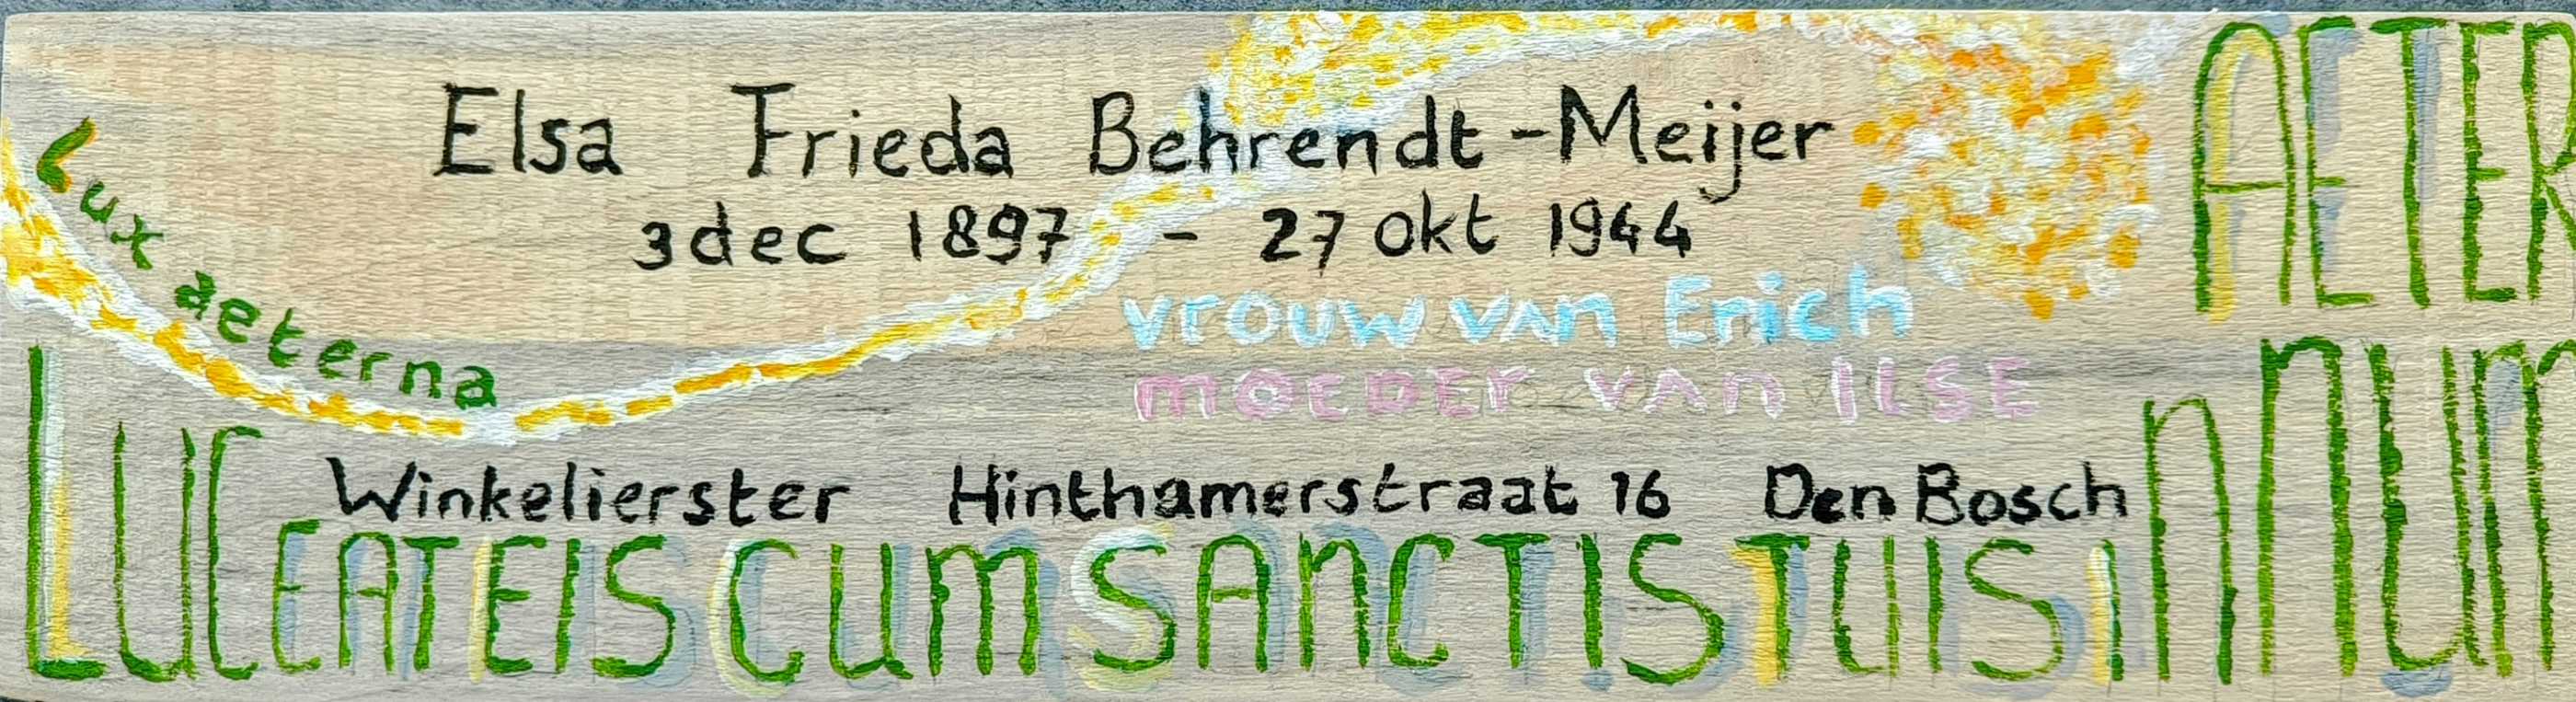 Elsa Frieda Behrendt-Meijer
3 dec 1897 - 27 okt 1944
vrouw van Erich
moeder van Ilse
Lux aeterna
Winkelierster Hinthamerstraat 16 Den Bosch
LUCEAT EIS CUM SANCTIS TUIS In
AETER
nnum